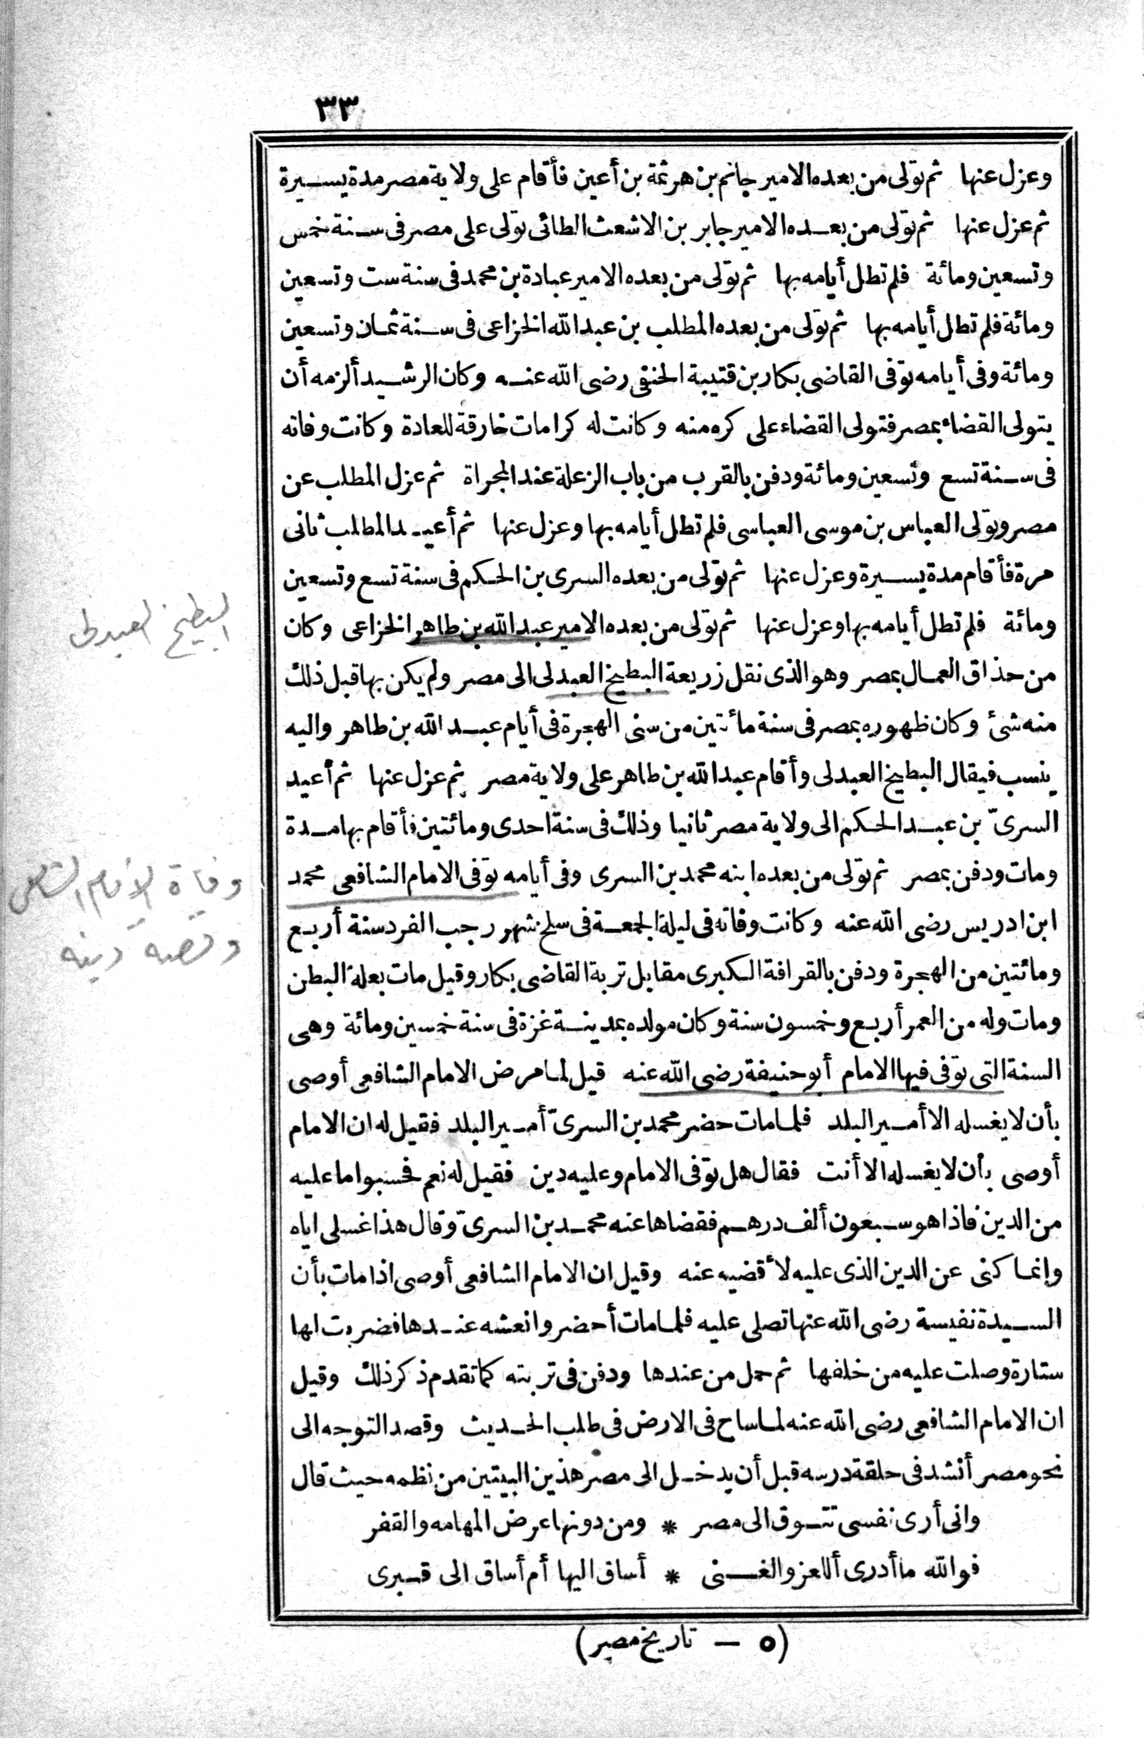 ٣٣
وعزل عنها ثم تولى من بعده الامير جانم بن هرثمة بن أعين فأقام على ولاية مصر مدة يسيرة
ثم عزل عنها ثم تولى من بعده الامير جابر بن الاشعث الطائى تولى على مصر فى سنة خمس
وتسعين ومائة فلم تطل أيامه بها ثم تولى من بعده الامير عبادة بن محمد فى سنة ست وتسعين
ومائة فلم تطل أيامه بها ثم تولى من بعده المطلب بن عبد الله الخزاعى فى سنة ثمان وتسعين
ومائة وفى أيامه توفى القاضى بكار بن قتيبة الحنفى رضى الله عنه وكان الرشيد ألزمه أن
يتولى القضاء بمصر فتولى القضاء على كره منه وكانت له كرامات خارقة للعادة وكانت وفاته
فى سنة تسع وتسعين ومائة ودفن بالقرب من باب الزعلة عند المجراة ثم عزل المطلب عن
مصر وتولى العباس بن موسى العباسى فلم تطل أيامه بها وعزل عنها ثم أعيد المطلب ثانى
مرة فأقام مدة يسيرة وعزل عنها ثم تولى من بعده السرى بن الحكم فى سنة تسع وتسعين
ومائة فلم تطل أيامه بها وعزل عنها ثم تولى من بعده الامير عبد الله بن طاهر الخزاعى وكان
البطيخ العبدلى
من حذاق العمال بمصر وهو الذى نقل زريعة البطيخ العبدلى الى مصر ولم يكن بها قبل ذلك
منه شئ وكان ظهوره بمصر فى سنة مائتين من سنى الهجرة فى أيام عبد الله بن طاهر واليه
ينسب فيقال البطيخ العبدلى وأقام عبد الله بن طاهر على ولاية مصر ثم عزل عنها ثم أعيد
السرىّ بن عبد الحكم الى ولاية مصر ثانيا وذلك فى سنة احدى ومائتين فأقام بها مدة
ومات ودفن بمصر ثم تولى من بعده ابنه محمد بن السرى وفى أيامه توفى الامام الشافعى محمد
وفاة الامام الشافعى
ابن ادريس رضى الله عنه وكانت وفاته فى ليلة الجمعة فى سلخ شهر رجب الفرد سنة أربع
وقصة دينه
ومائتين من الهجرة ودفن بالقرافة الكبرى مقابل تربة القاضى بكار وقيل مات بعلة البطن
ومات وله من العمر أربع وخمسون سنة وكان مولده بمدينة غزة فى سنة خمسين ومائة وهى
السنة التى توفى فيها الامام أبو حنيفة رضى الله عنه قيل لما مرض الامام الشافعى أوصى
بأن لا يغسله الا أمير البلد فلما مات حضر محمد بن السرىّ أمير البلد فقيل له ان الامام
أوصى بأن لا يغسله الا أنت فقال هل توفى الامام وعليه دين فقيل له نعم فحسبوا ما عليه
من الدين فاذا هو سبعون ألف درهم فقضاها عنه محمد بن السرىّ وقال هذا غسلى اياه
وإنما كنى عن الدين الذى عليه لأقضيه عنه وقيل ان الامام الشافعى أوصى اذا مات بأن
السيدة نفيسة رضى الله عنها تصلى عليه فلما مات أحضروا نعشه عندها فضربت لها
ستارة وصلت عليه من خلفها ثم حمل من عندها ودفن فى تربته كما تقدم ذكر ذلك وقيل
ان الامام الشافعى رضى الله عنه لما ساح فى الارض فى طلب الحديث وقصد التوجه الى
نحو مصر أنشد فى حلقة درسه قبل أن يدخل الى مصر هذين البيتين من نظمه حيث قال
وانى أرى نفسى تتوق الى مصر * ومن دونها عرض المهامه والقفر
فوالله ما أدرى أللعز والغنى * أساق اليها أم أساق الى قبرى
(٥ — تاريخ مصر)